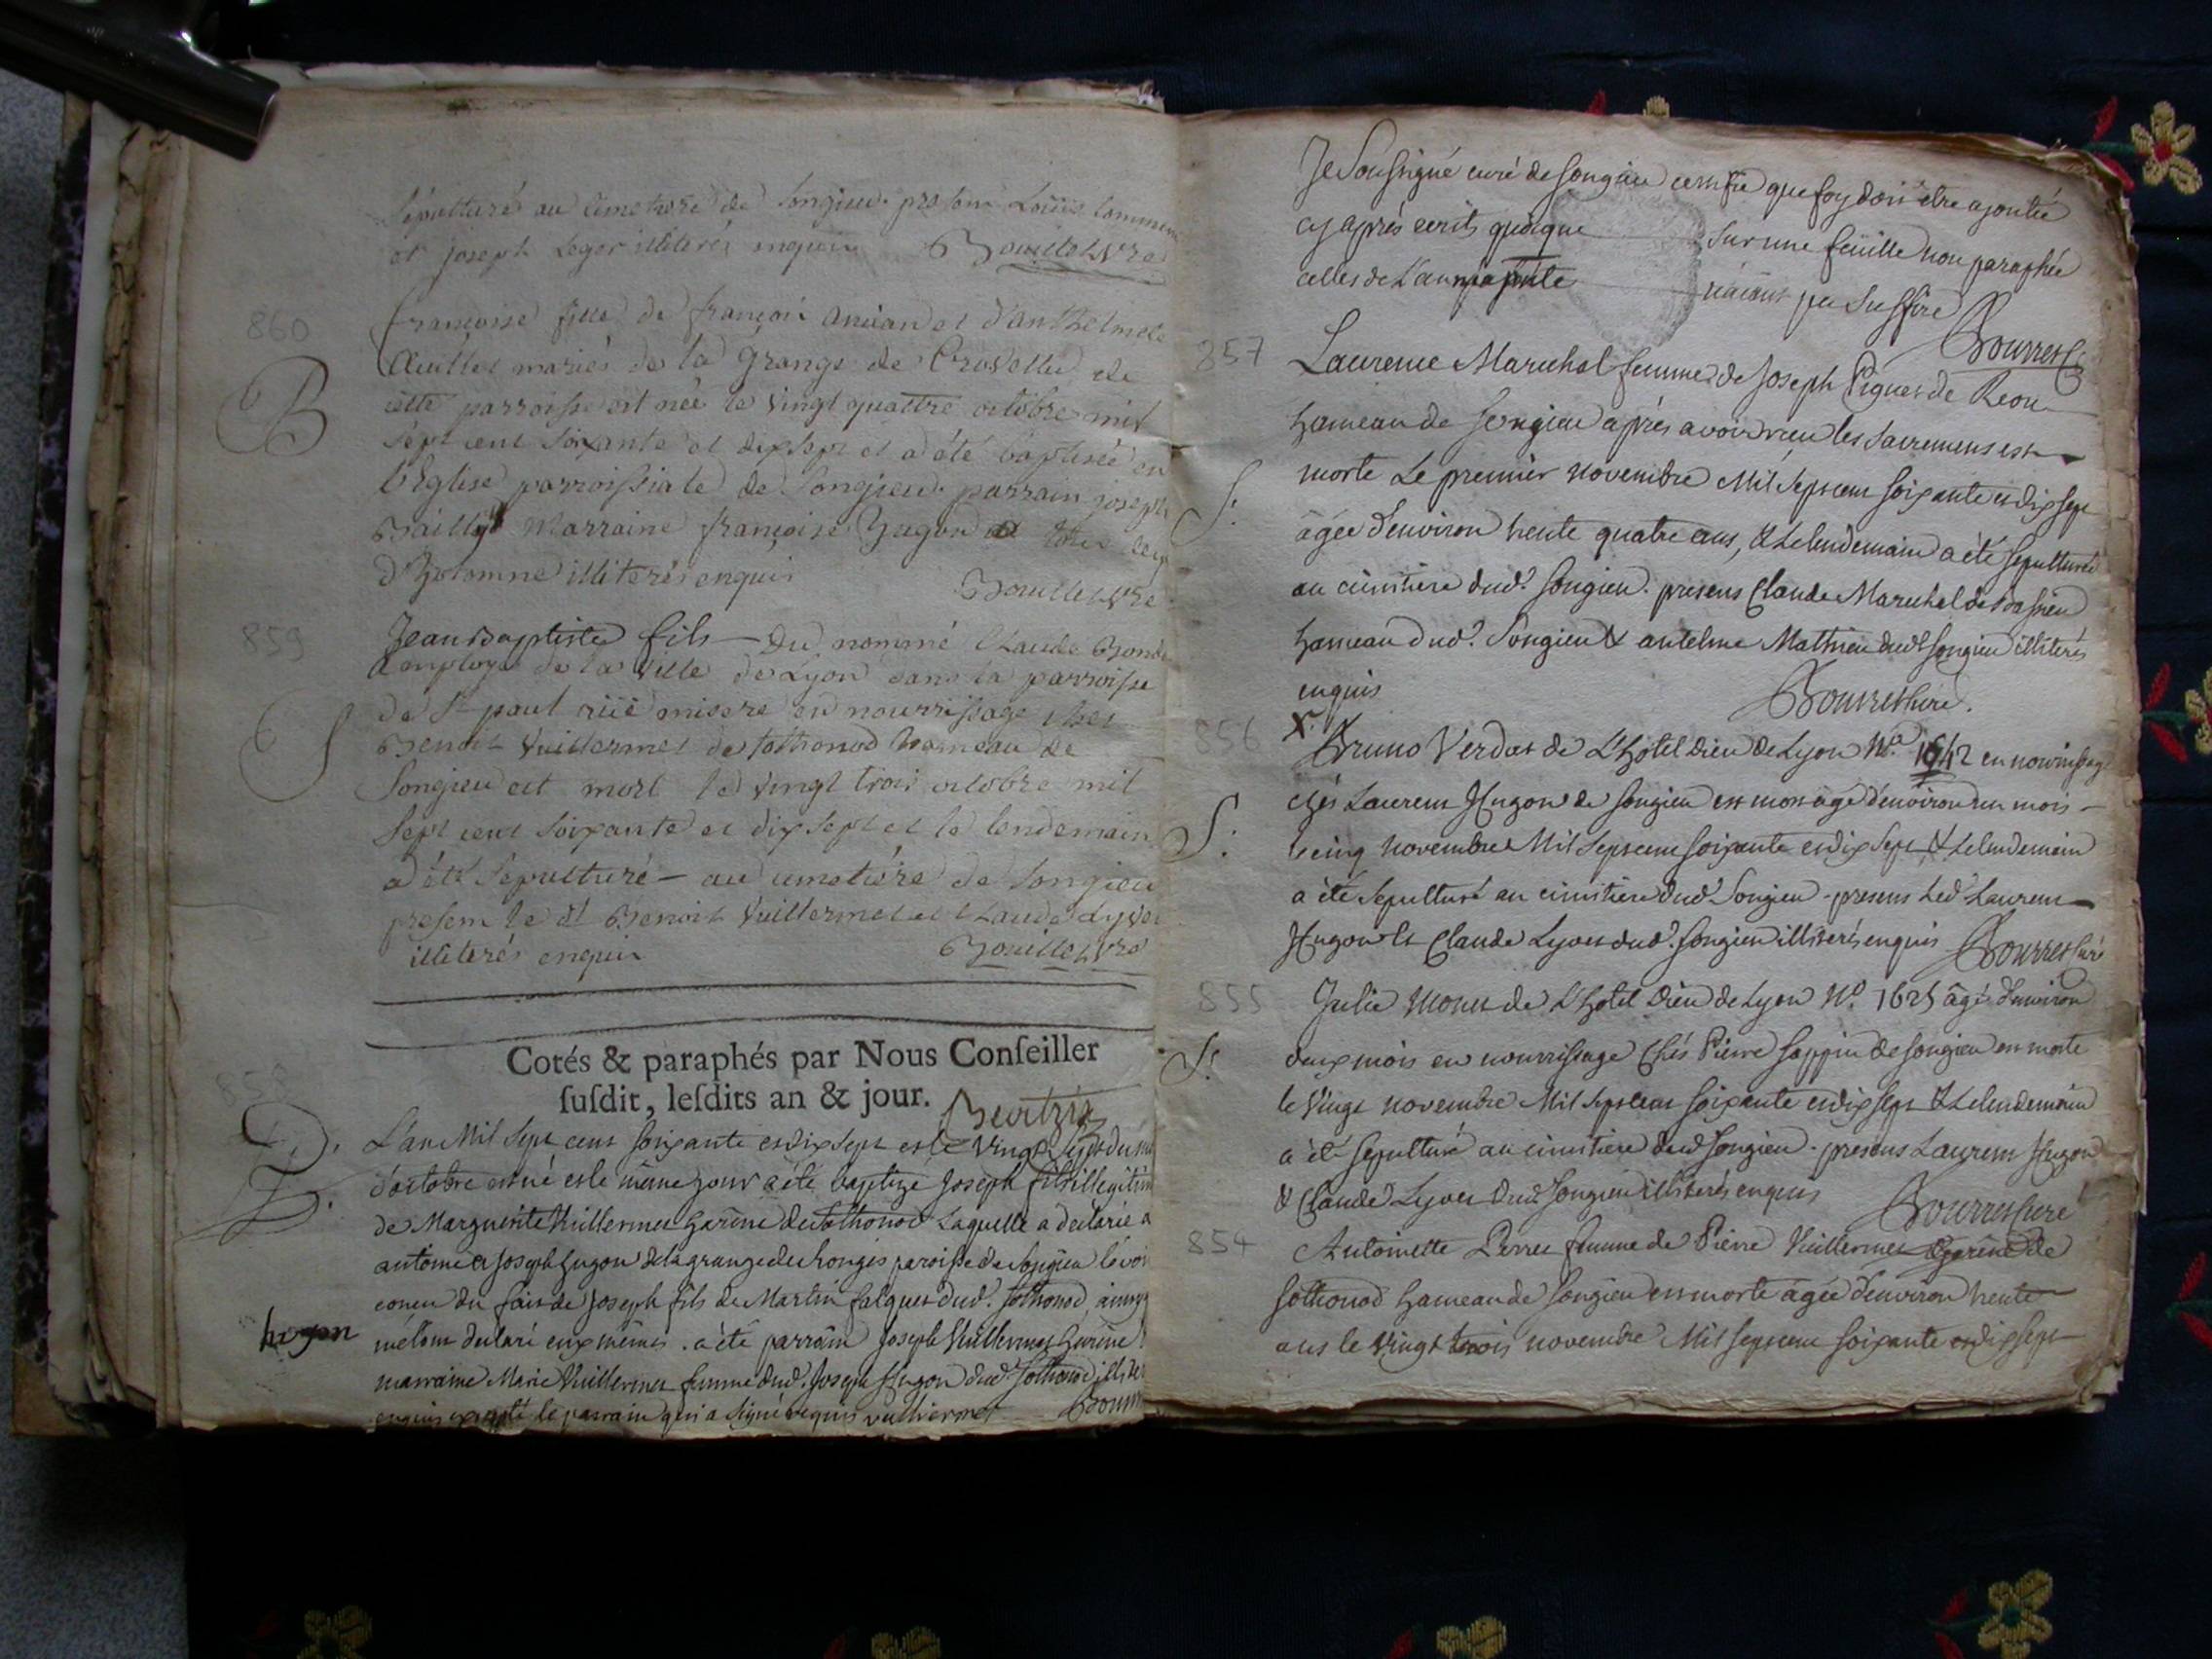 sépulturé au cimetiere de Songieu. presens Louis
et joseph Leger illiterés enquis Bouillet Vre
860
francoise fille de francois et d'anthelmette
mariés de la Grange de de
B
cette parroisse est née le vingt quattre octobre mil
sept cent soixante et dix sept et a été baptisée en
l'Eglise parroissiale de Songieu. parrain joseph
Bailly Marraine francoise hugon tous deux
d'hotonne illiterés enquis Bouillet Vre
859
Jean Baptiste fils Du nommé Claude
employé de la ville de Lyon dans la parroisse
de St paul rüe misere en nourrissage chez
S
Benoit Vuillermet de sothonod hameau de
Songieu est mort le vingt trois octobre mil
sept cent soixante et dix sept et le lendemain
a été sepulturé au cimetière de Songieu
presens le dt Benoit Vuillermet et Claude Lyvet
illiterés enquis Bouillet Vre
Cotés & paraphés par Nous Conſeiller
ſuſdit, leſdits an & jour.
858
L'an Mil Sept cens soixante et dix sept et le vingt sept du
B.
d'octobre est né et le même jour a été baptizé joseph fils illegitim
de Marguerite Vuillermet de Sothonod Laquelle a declaré a
antoine et joseph hugon de la grange des ronges paroisse de Songieu l'avoir
concu du fait de joseph fils de Martin falquet dud. sothonod,
hugon
me l'ont declaré eux mêmes. a été parrain joseph Vuillermet
marraine Marie Vuillermet femme dud. joseph hugon dud. Sothonod
enquis excepté le parrain qui a signé requis vuilliermet
Je Soussigné curé de songieu certifie que foy doit etre ajoutée
cy après ecrits quoique sur une feüille non paraphée
celles de L'année n'aiant pu suffire
Bourret C
857
Laurence Marechal femme de Joseph Piguet de
hameau de songieu après avoir recu les sacremens est
morte Le premier novembre Mil Sept cent soixante et dix sept
S.
âgée d'environ trente quatre ans, & Le lendemain a été sepulturée
au cimitiere dud. songieu. presens Claude Marechal de
hameau dud. Songieu & antelme Mathieu dud songieu illiterés
enquis Bourret Curé.
856
X.
Bruno Verdat de L'hotel Dieu de Lyon No. 1642 en nourrissage
chés Laurent Hugon de songieu est mort âgé d'environ un mois
S.
le cinq novembre Mil Sept cent soixante et dix sept & Le lendemain
a été sepulturé au cimitiere dud Songieu. presens Led Laurent
Hugon et Claude Lyvet dud. songieu illiterés enquis Bourret Curé
855
Julie de L'hotel Dieu de Lyon No. 1625 âgé d'environ
S.
deux mois en nourrissage chés Pierre Sappin de songieu est morte
le Vingt novembre Mil Sept cent soixante et dix sept & Le lendemain
a été sepulturé au cimitiere dud songieu. presens Laurent Hugon
& Claude Lyvet dud Songieu illiterés enquis Bourret Curé
854
Antoinette Perret femme de Pierre Vuillermet de
Sothonod hameau de songieu est morte âgée d'environ trente
ans le Vingt trois novembre Mil Sept cent soixante et dix sept